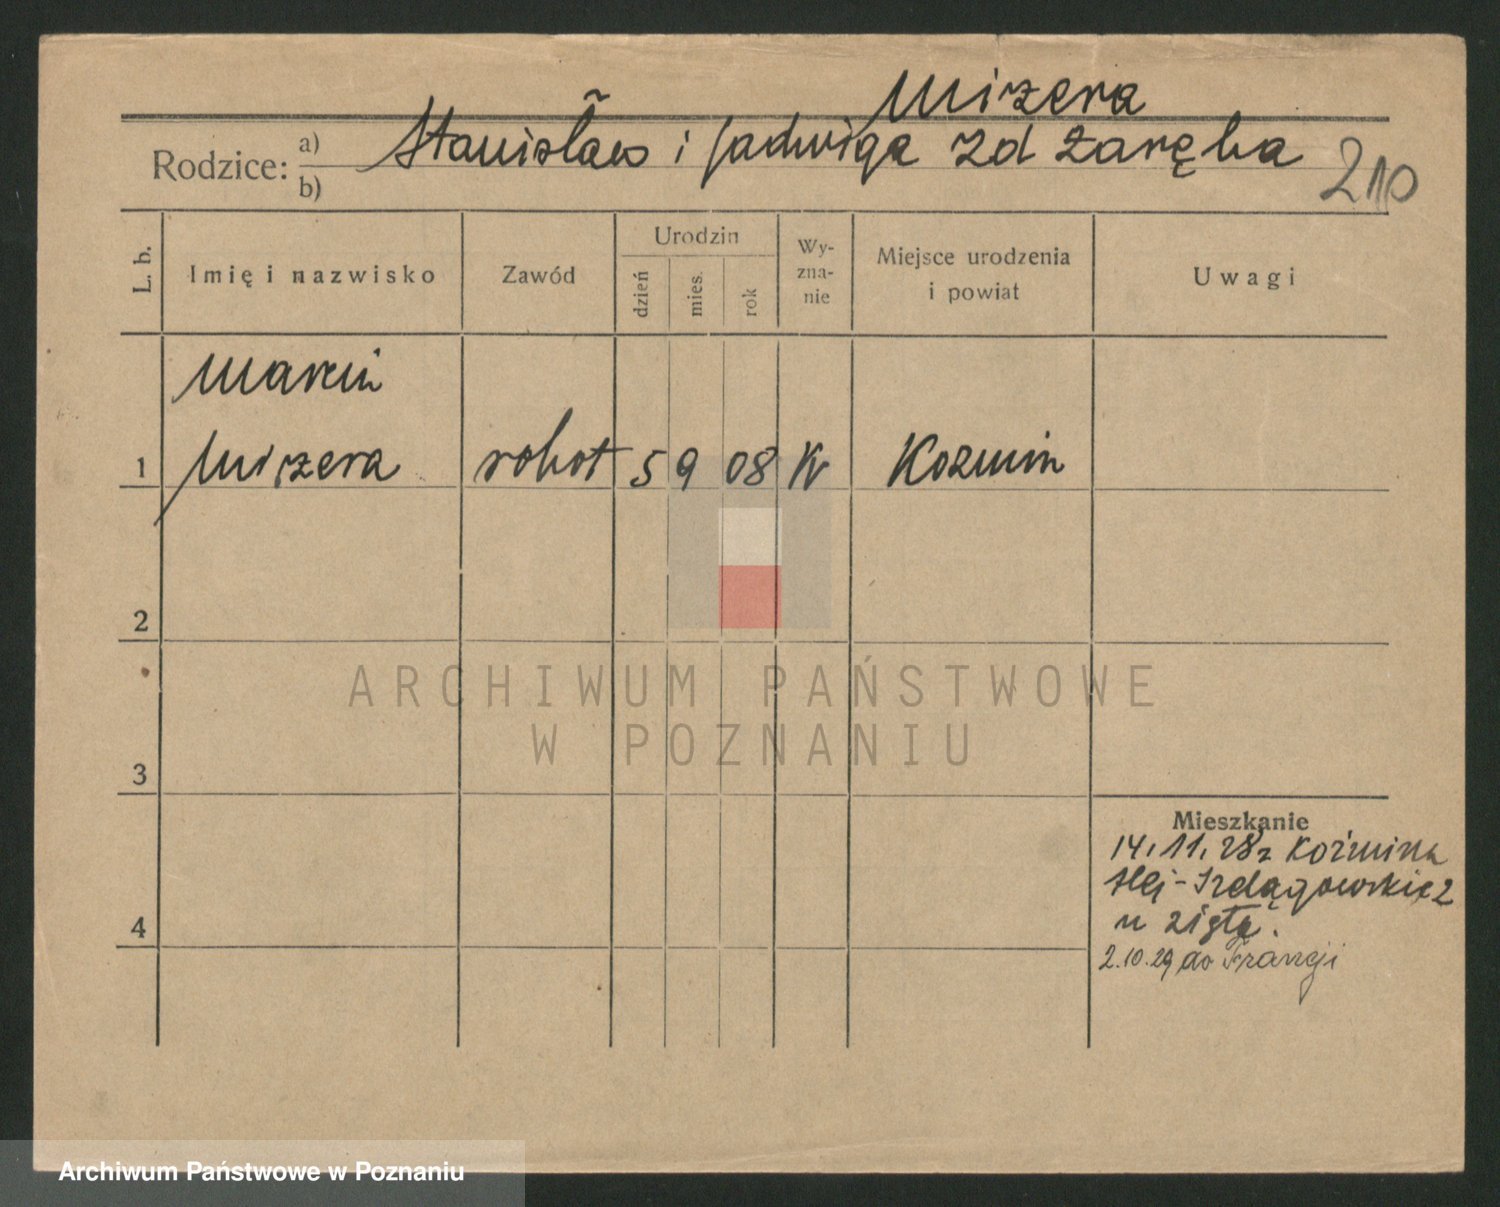 Mizera
Rodzice: a) Stanisław i Jadwiga zd Zaręba
b)
210
L. b. Imię i nazwisko Zawód Urodzin dzień mies. rok Wy-zna-nie Miejsce urodzenia i powiat Uwagi
Marcin
1 Mizera robot 5 9 08 K Kozmin
2
ARCHIWUM PAŃSTWOWE
W POZNANIU
3
Mieszkanie
14.11.28 z Koźmina
4
2.10.29 do Francji
Archiwum Państwowe w Poznaniu